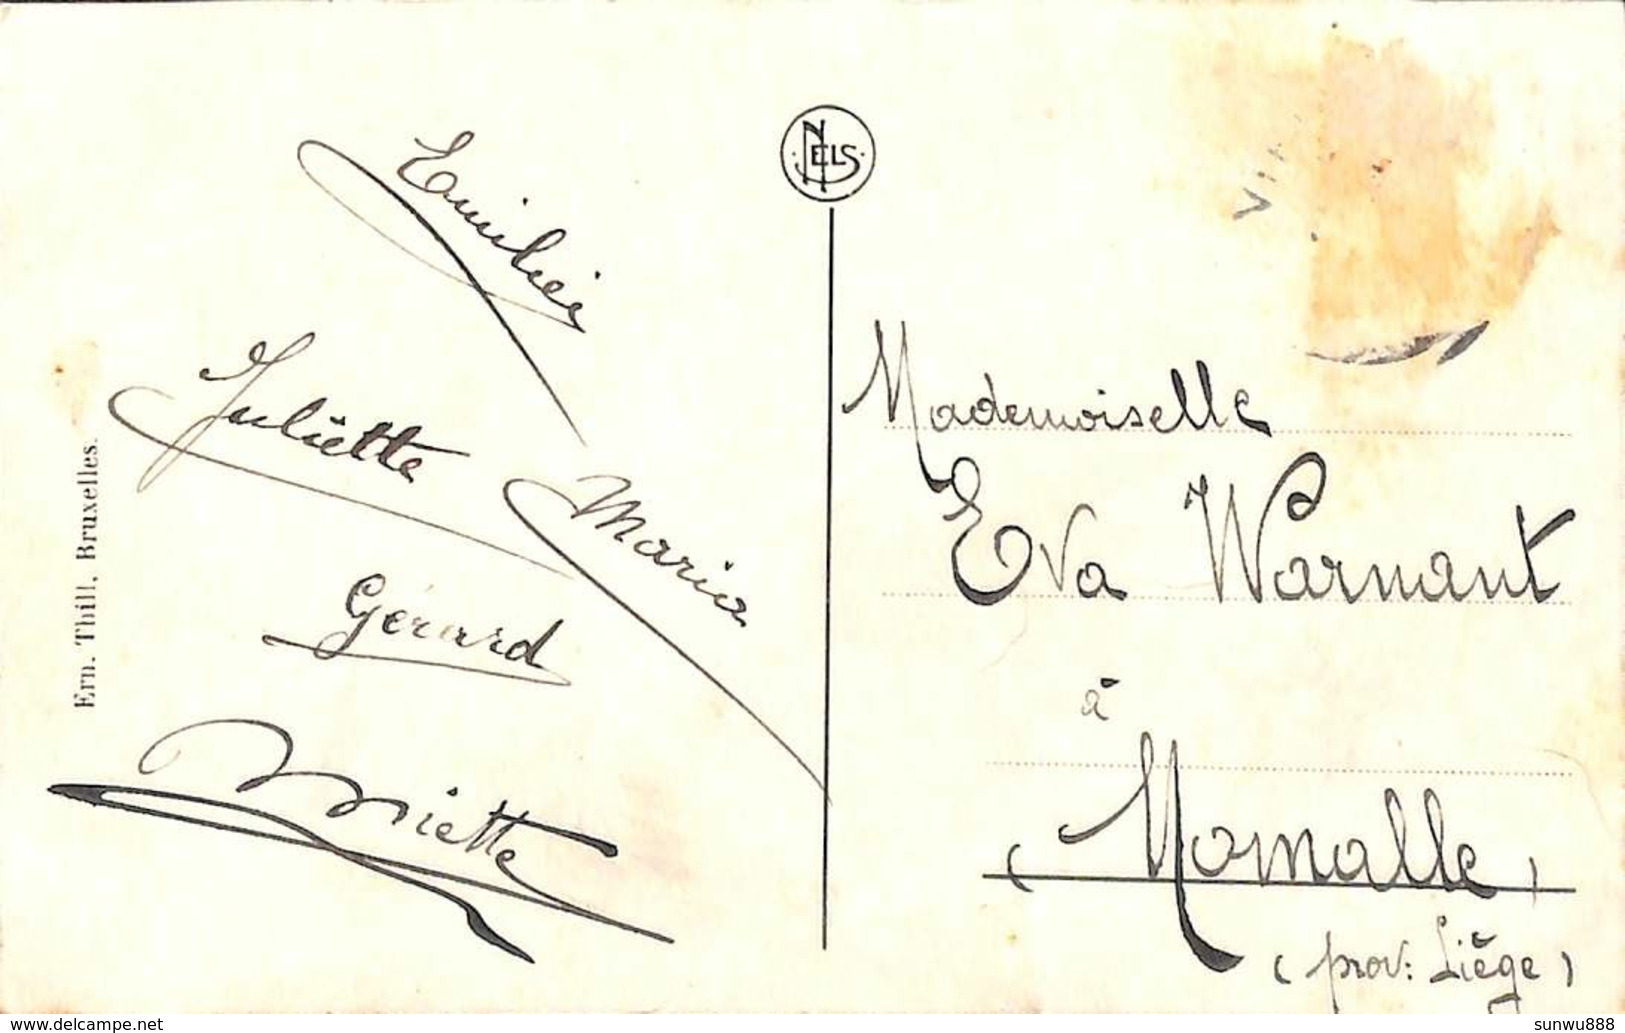 NELS
Emilie
Juliette
Maria
Gérard
Mariette
Ern. Thill, Bruxelles.
Mademoiselle
Eva Warnant
à
( Momalle )
( prov: Liège )
delcampe.net
sunwu888